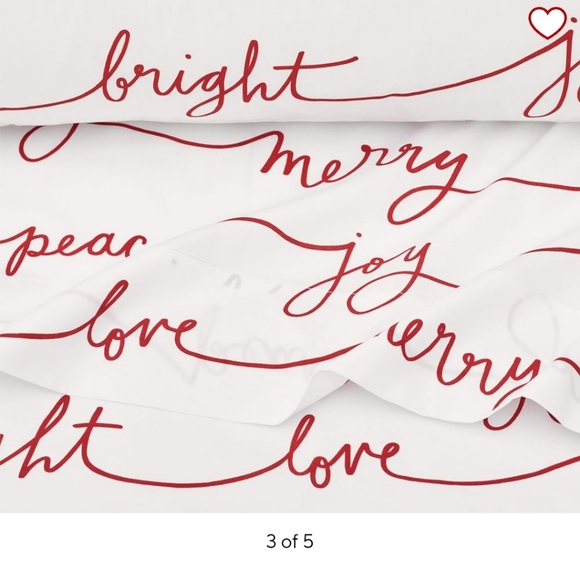 bright jo
merry
pear
joy
love erry
ght love
3 of 5